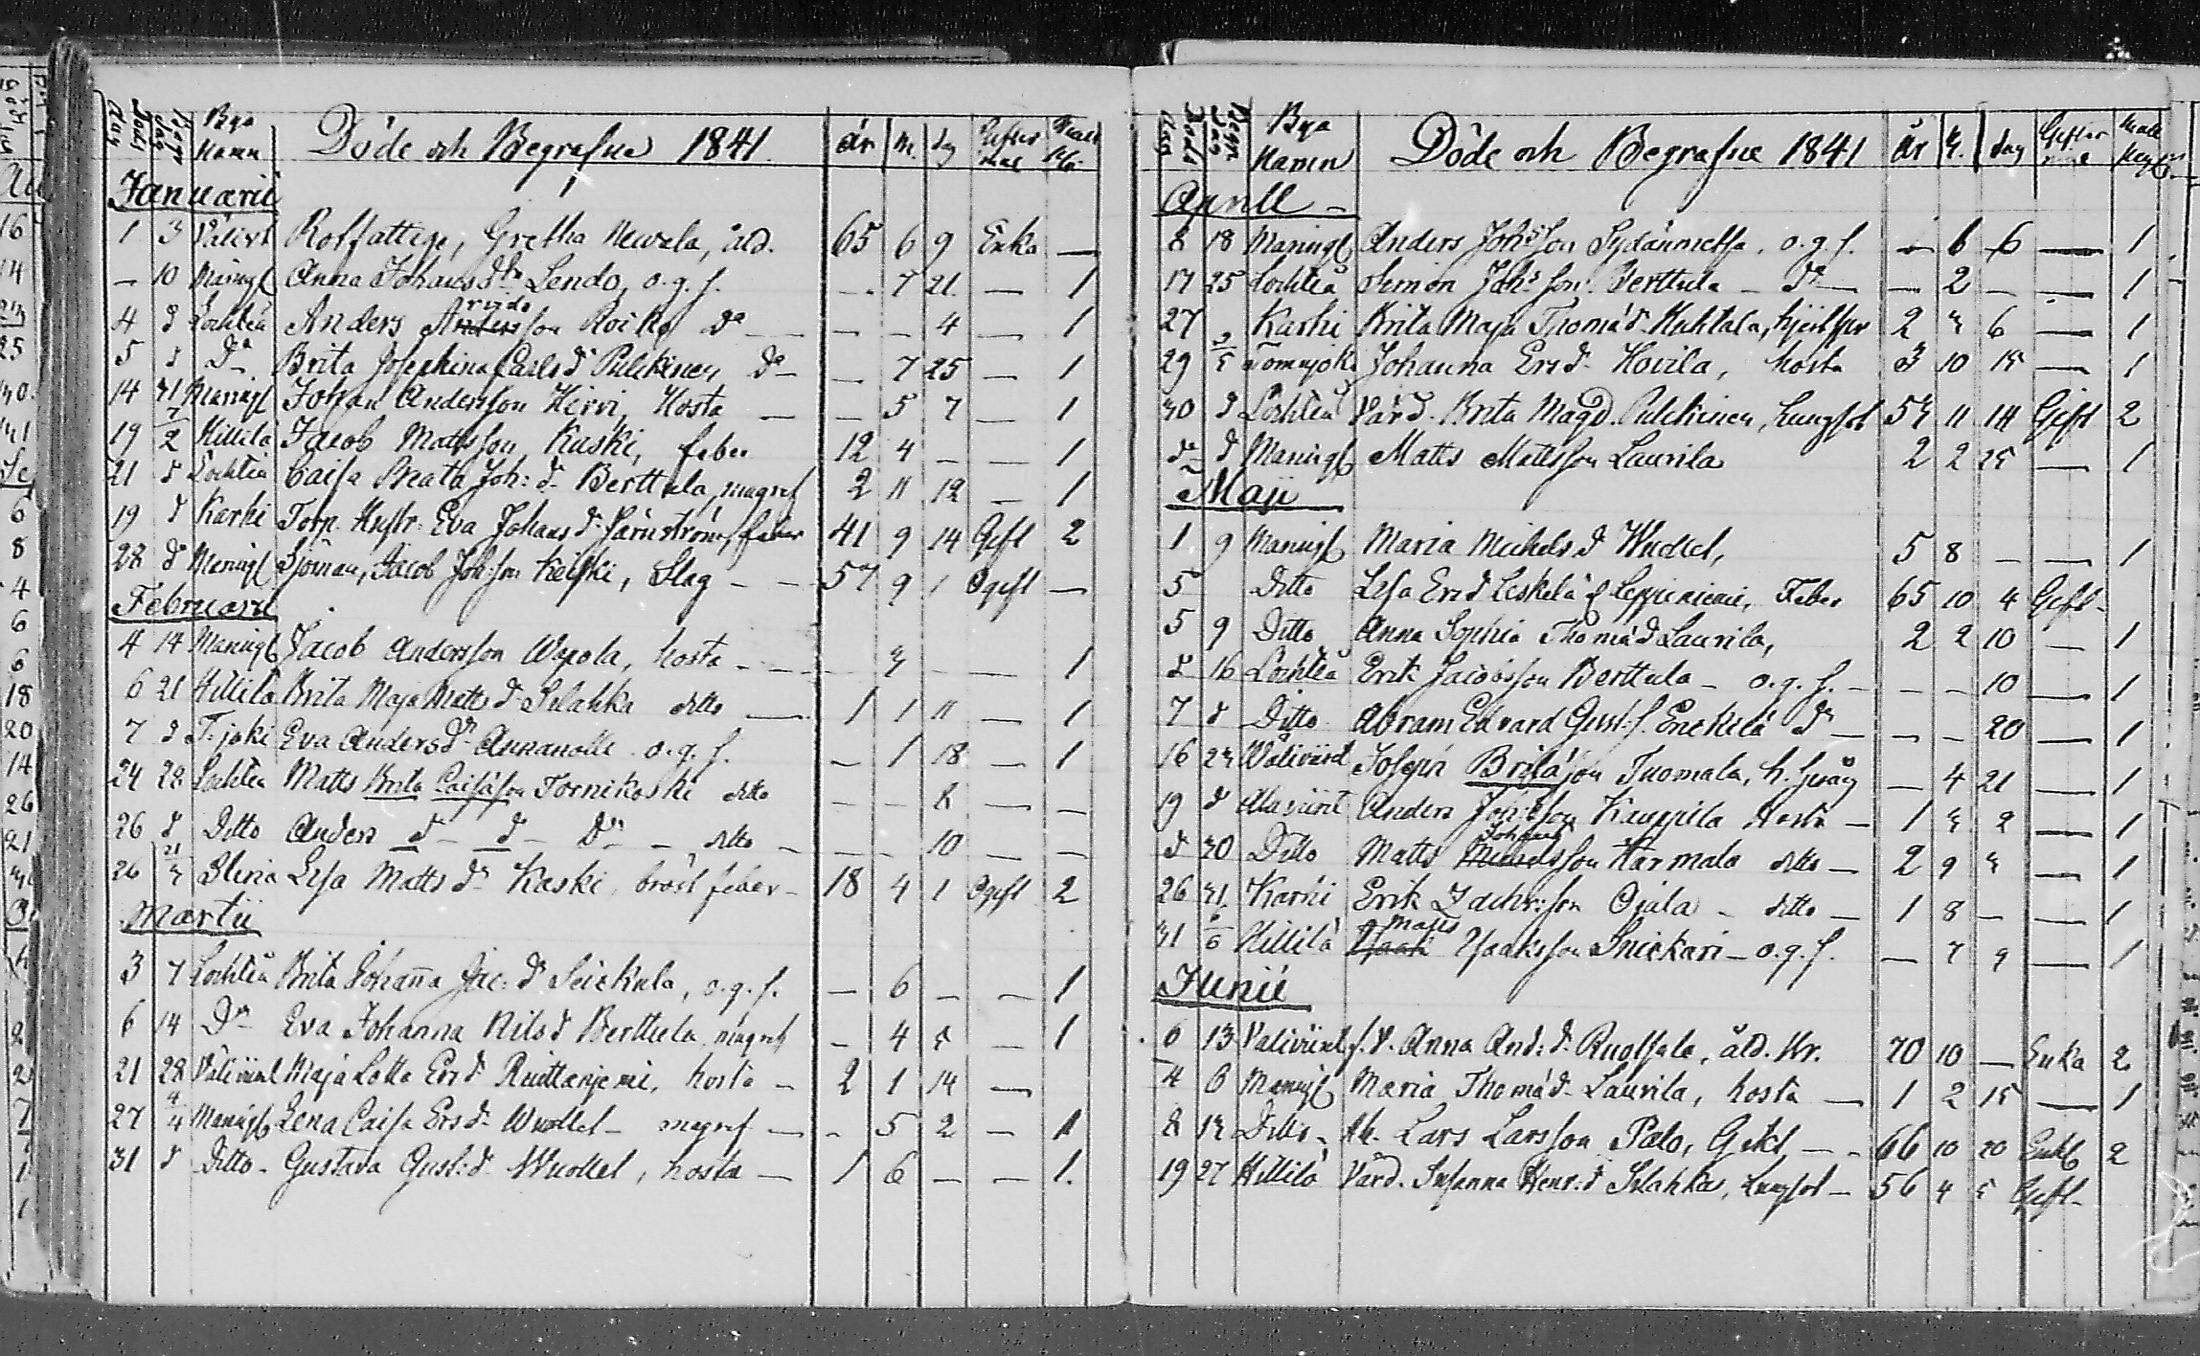 Döds dag Begr dag Bya Namn Döde och Begrafne 1841. år m. dg
Januarii
1 3 Wälivi Rotfattige, Gretha Newala, åld. 65 6 9 Enka —
— 10 Maningb Anna Johansdr Lendo, o.g.s. — 7 21 — 1
4 d Lochteå Anders Andersson Roiko do — — 4 — 1
5 d Do Brita Josephina Carlsd Pulckinen do — 7 25 — 1
14 31 Maningb Johan Andersson Hirvi, Hosta — 5 7 — 1
19 7/2 Hillilä Jacob Mattsson Kaski, feber 12 4 — — 1
21 d Lochteå Caisa Beata Joh:d. Berttula, magref 2 11 12 — 1
19 d Karhi Torp. Hustr. Eva Johansd. Järnström, feber 41 9 14 Gift 2
28 d Maningb Sjöman, Jacob Johsson Keiski, Slag — 57 9 1 Ogift —
Februarii
4 14 Maningb Jacob Andersson Wapola, hosta — 3 — — 1
6 21 Hillilä Brita Maja Mattsd Slahka ditto — 1 1 11 — 1
7 d T.joki Eva Andersdr Annanolli o.g.s. — 1 18 — 1
24 28 Lochteå Matts Brita Caisasson Tornikoski ditto — — 8 — —
26 d Ditto Anders d — d — Do — ditto — — 10 — —
26 21/3 Elina Lisa Mattsdr Kaski, bröst feber — 18 4 1 Ogift 2
Martii
3 7 Lochteå Brita Johanna Jac:dr Seickula, o.g.s. — 6 — — 1
6 14 Do Eva Johanna Nilsd Berttula, magref — 4 5 — 1
21 28 Wälivirt Maja Lotta Ersd. hosta — 2 1 14 —
27 4/4 Maningb Lena Caisa Ersd. Wuollet — magref — 5 2 — 1
31 d Ditto — Gustava Gust:d. Wuollet, hosta — 1 6 — — 1.
Döds dag Begr. dag Bya Namn Döde och Begrafne 1841 År M. dag
Aprill
8 18 Maningb Anders Johsson Sydänmetsä, o.g.s. — 6 6 — 1
17 25 Lochteå Simon Johsson Berttula — Do — 2 — — 1
27 Karhi Brita Maja Thomæd. Huhtala, 2 3 6 — 1
29 2/5 Tomujoki Johanna Ersd. Hovila, hosta 3 10 15 — 1
30 d Lochteå Värd. Brita Magd. Pulckinen, Lungsot 53 11 14 Gift 2
do d Maningb Matts Mattsson Laurila 2 2 25 — 1
Maji
1 9 Maningb Maria Michelsd Wuollet, 5 8 — — 1
5 Ditto Lisa Ersd Leskelä f Leppiniemi, Feber 65 10 4 Gift —
5 9 Ditto Anna Sophia Thomæd Laurila, 2 2 10 — 1
d 16 Lochteå Erik Jacobsson Berttula — o.g.s. — — — 10 — 1
7 d Ditto Abram Edvard Gust:s. Enckilä do — — — 20 — 1
16 23 Wälivirt Joseph Britasson Tuomala, — 4 21 — 1
19 d Alaviirt Anders Johsson Kauppila Hosta — 1 3 2 — 1
d 30 Ditto Matts Johansson Karmala ditto — 2 9 3 — 1
26 31 Karhi Erik Zachr:son Ojala — ditto — 1 8 — — 1
31 6/6 Hillilä Matts Isaaksson Snickari — o.g.s. — 7 9 — 1
Junii
6 13 Wälivirt Anna And:d. Ruotsala, åld. kr. 70 10 — Enka 2
4 6 Maningb Maria Thomæd. Laurila, hosta — 1 2 15 — 1
8 13 Ditto — Lars Larsson Palo, Gikt — 66 10 20 Enkl 2
19 27 Hillilä Värd. Susanna Henr:d Slahka, Lungsot — 56 4 5 Gift —